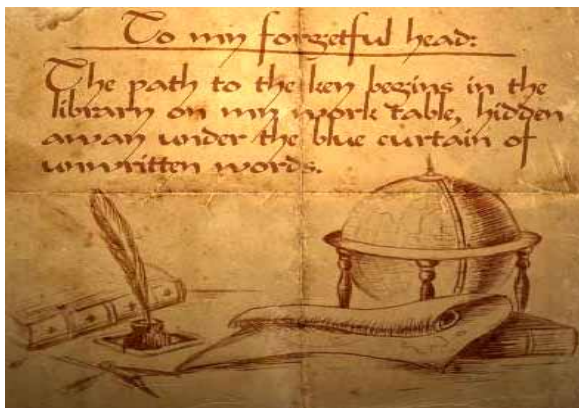 To my forgetful head:
The path to the key begins in the
library on my work table, hidden
away under the blue curtain of
unwritten words.